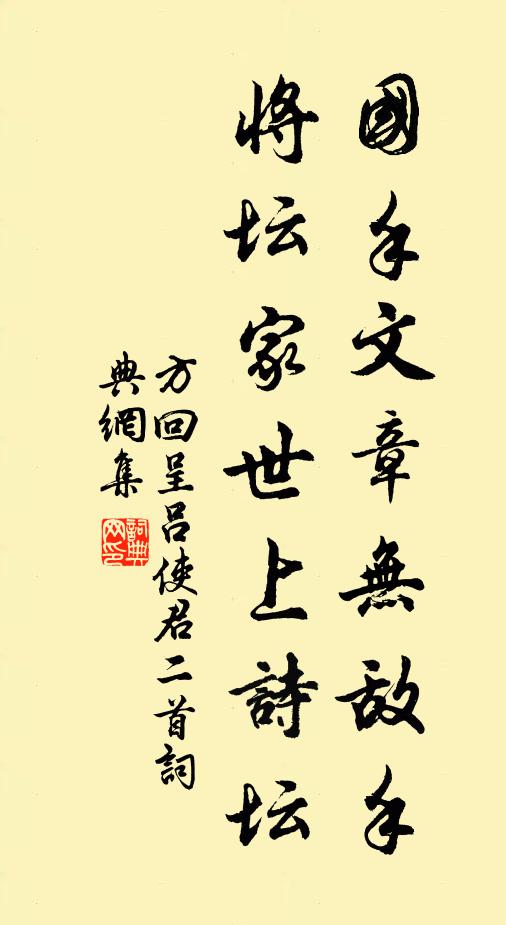 國手文章無敵手
将坛家世上詩坛
方回呈吕使君二首詞
典網集
詞典网印